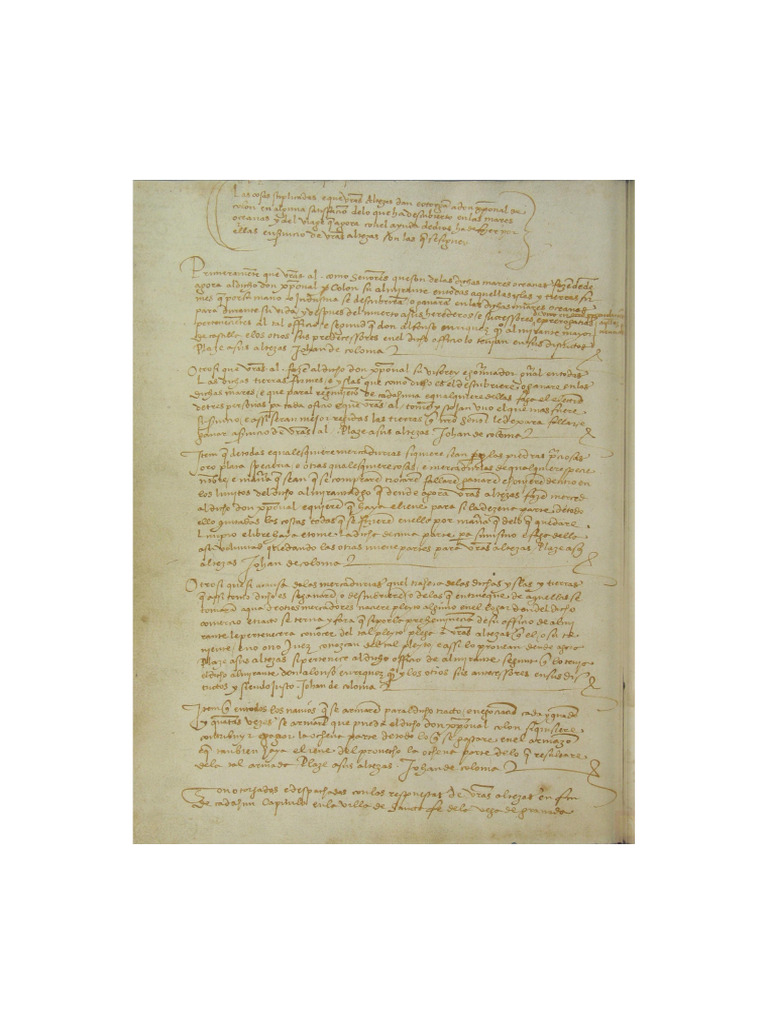 Las cosas suplicadas e que vras Altezas dan e otorgan a don xpoual de
colon en alguna satisfacion de lo que ha descubierto en las mares
oceanas y del viage que agora con el ayuda de dios ha de fazer por
ellas en seruicio de vras altezas son las que se siguen
Primeramente que vras al. como Senores que son de las dichas mares oceanas fazen dende
agora al dicho don xpoual Colon su almirante en todas aquellas yslas y tierras fir
mes que por su mano o Industria se descubriran o ganaran en las dichas mares oceanas
para durante su vida, y despues del muerto a sus herederos e successores
de uno en otro perpetualmente con todas aquellas
e preroganas
pertenecientes Al tal officio e segund que don Alfonso enrriquez almirante mayor
de castilla e los otros sus predecessores en el dicho officio lo tenian en sus districtos
Plaze a sus altezas Johan de coloma
Otrosi que vras al. fazen al dicho don xpoual su visorey e gouernador general en todas
Las dichas tierras firmes e yslas que como dicho es el descubriere o ganare en las
dichas mares, e que paral regimiento de cada huna e qualquiere dellas faga el election
de tres personas para cada oficio e que vras al. tomen y scojan vno el que mas fuere
su seruicio, e assi seran mejor regidas las tierras que nro senor le dexara fallar e
ganar a seruicio de vras al. Plaze a sus altezas Johan de coloma
Item que de todas e qualesquiere mercadurias siquiere sean perlas piedras preciosas
oro plata specieria e otras qualesquiere cosas, e mercadurias de qualquiere specie
nombre, e manera que sean que se compraren trocaren fallaren ganaren e houieren dentro en
los limites del dicho almirantadgo que dende agora vras altezas fazen merced
al dicho don xpoual e quieren que haya e lieue para si la dezena parte de todo
ello quitadas las costas todas que se fizieren en ello por manera que de lo que quedare
Limpio e libre haya e tome la dicha decima parte para si mismo e faga della
a su voluntad quedando las otras nueue partes para vras altezas. Plaze a sus
altezas Johan de coloma
Otrosi que si a causa de las mercadurias quel trahera de las dichas yslas y tierras
que assi como dicho es se ganaren o descubrieren o de las que en trueque de aquellas se
tomaran aqua de otros mercadores naciere pleyto alguno en el logar don del dicho
comercio e tracto se terna y fara que si por la preheminencia de su officio de almi
rante le pertenecera conocer del tal pleyto plega a vras altezas que el o su te
niente e no otro Juez conozcan del tal pleyto e assi lo prouean dende agora
Plaze a sus altezas si pertenece al dicho officio de almirante segunt que lo tenia
el dicho almirante don alonso enrriquez y los otros sus antecessores en sus dis
trictos y siendo justo. Johan de coloma
Item que en todos los nauios que se armaren paral dicho tracto, e negociacion cada y quando
y quantas vezes se armaren que pueda el dicho don xpoual colon si quisiere
contribuyr e pagar la ochena parte de todo lo que se gastare en el armazon
e que tambien haya e lieue del prouecho la ochena parte de lo que resultare
de la tal armada Plaze a sus altezas. Johan de coloma
Son otorgadas e despachadas con las respuestas de vras altezas en fin
de cada hun Capitulo en la villa de Sancta fe de la vega de granada